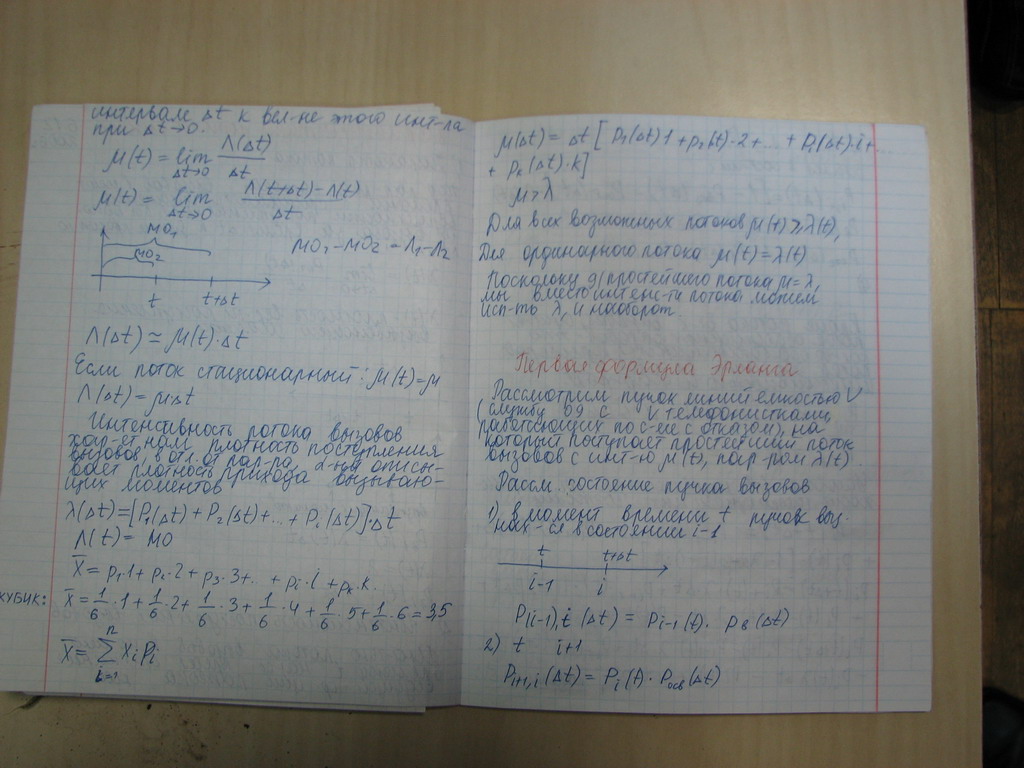 интервале Δt к вел-не этого инт-ла
при Δt→0.
μ(t) = lim Λ(Δt)/Δt
Δt→0
μ(t) = lim (Λ(t+Δt)-Λ(t))/Δt
Δt→0
МО₁
МО₂
МО₁-МО₂ = Λ₁-Λ₂
t t+Δt
Λ(Δt) ≃ μ(t)·Δt
Если поток стационарный: μ(t)=μ
Λ(Δt)=μΔt
Интенсивность потока вызовов
хар-ет нам плотность поступления
вызовов в отл. от пар-ра, описы-
вает плотность прихода вызываю-
щих моментов
λ(Δt)=[P₁(Δt)+P₂(Δt)+...+Pᵢ(Δt)]·Δt
Λ(t) = МО
X̅ = p₁·1+p₂·2+p₃·3+..+pᵢ·i+pₖ·k.
КУБИК: X̅=1/6·1+1/6·2+1/6·3+1/6·4+1/6·5+1/6·6=3,5
X̅= Σ xᵢpᵢ
n
i=1
μ(Δt)=Δt[P₁(Δt)1+p₂(t)·2+...+Pᵢ(Δt)·i+
+Pₖ(Δt)·k]
μ>λ
Для всех возможных потоков μ(t)≥λ(t),
Для ординарного потока μ(t)=λ(t)
Поскольку д/простейшего потока μ=λ,
мы вместо интенс-ти потока можем
исп-ть λ, и наоборот.
Первая формула Эрланга
Рассмотрим пучок линий емкостью V
(службу 09 с V телефонистками,
работающих по с-ме с отказом), на
который поступает простейший поток
вызовов с инт-ю μ(t), пар-ром λ(t).
Рассм. состояние пучка вызовов
1) в момент времени t пучок выз.
нах-ся в состоянии i-1
t t+Δt
i-1 i
P(i-1),i(Δt) = Pi-1(t)·pв(Δt)
2) t i+1
Pi+1,i(Δt)=Pi(t)·Pосв(Δt)